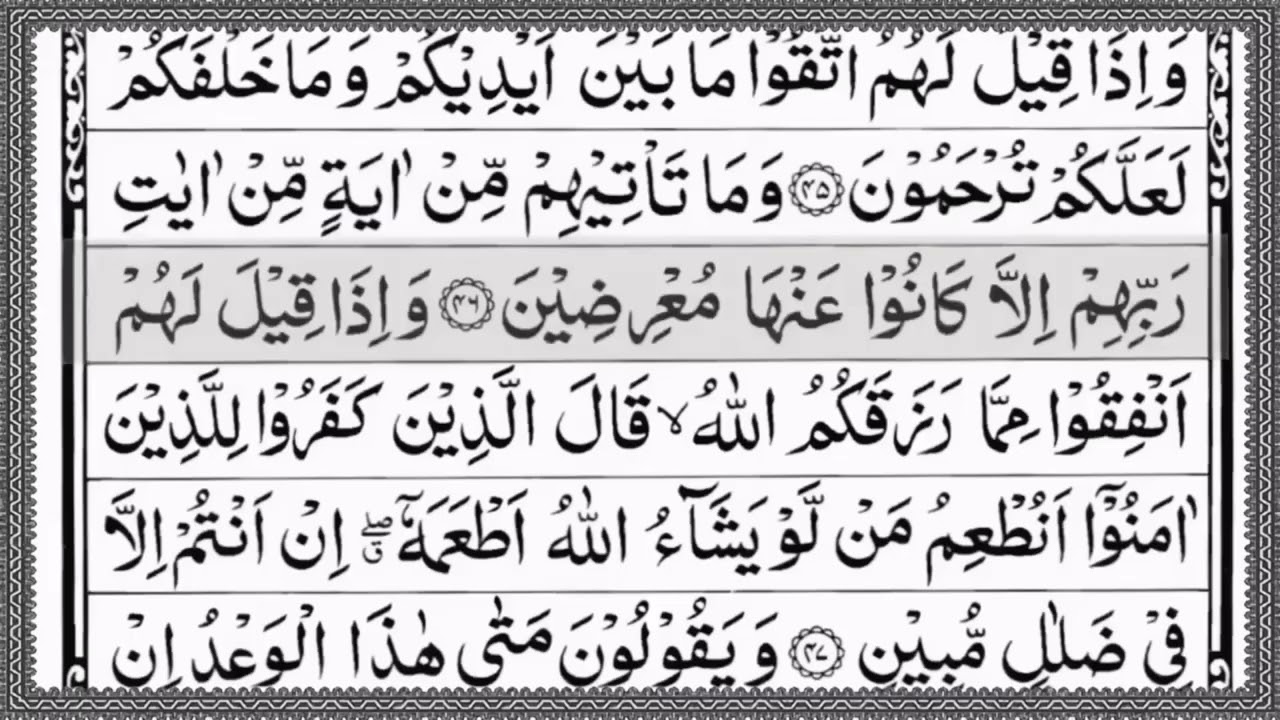 وَ اِذَا قِيْلَ لَهُمُ اتَّقُوْا مَا بَيْنَ اَيْدِيْكُمْ وَ مَا خَلْفَكُمْ
لَعَلَّكُمْ تُرْحَمُوْنَ ۝۴۵ وَ مَا تَاْتِيْهِمْ مِّنْ اٰيَةٍ مِّنْ اٰيٰتِ
رَبِّهِمْ اِلَّا كَانُوْا عَنْهَا مُعْرِضِيْنَ ۝۴۶ وَ اِذَا قِيْلَ لَهُمْ
اَنْفِقُوْا مِمَّا رَزَقَكُمُ اللّٰهُ ۙ قَالَ الَّذِيْنَ كَفَرُوْا لِلَّذِيْنَ
اٰمَنُوْۤا اَنُطْعِمُ مَنْ لَّوْ يَشَآءُ اللّٰهُ اَطْعَمَهٗۤ ۖۗ اِنْ اَنْتُمْ اِلَّا
فِيْ ضَلٰلٍ مُّبِيْنٍ ۝۴۷ وَ يَقُوْلُوْنَ مَتٰى هٰذَا الْوَعْدُ اِنْ